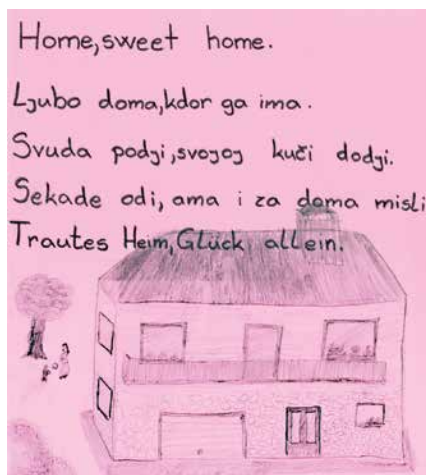 Home,sweet home.
Ljubo doma,kdor ga ima.
Svuda podji,svojoj kući dodji.
Sekade odi,ama i za doma misli
Trautes Heim,Glück allein.